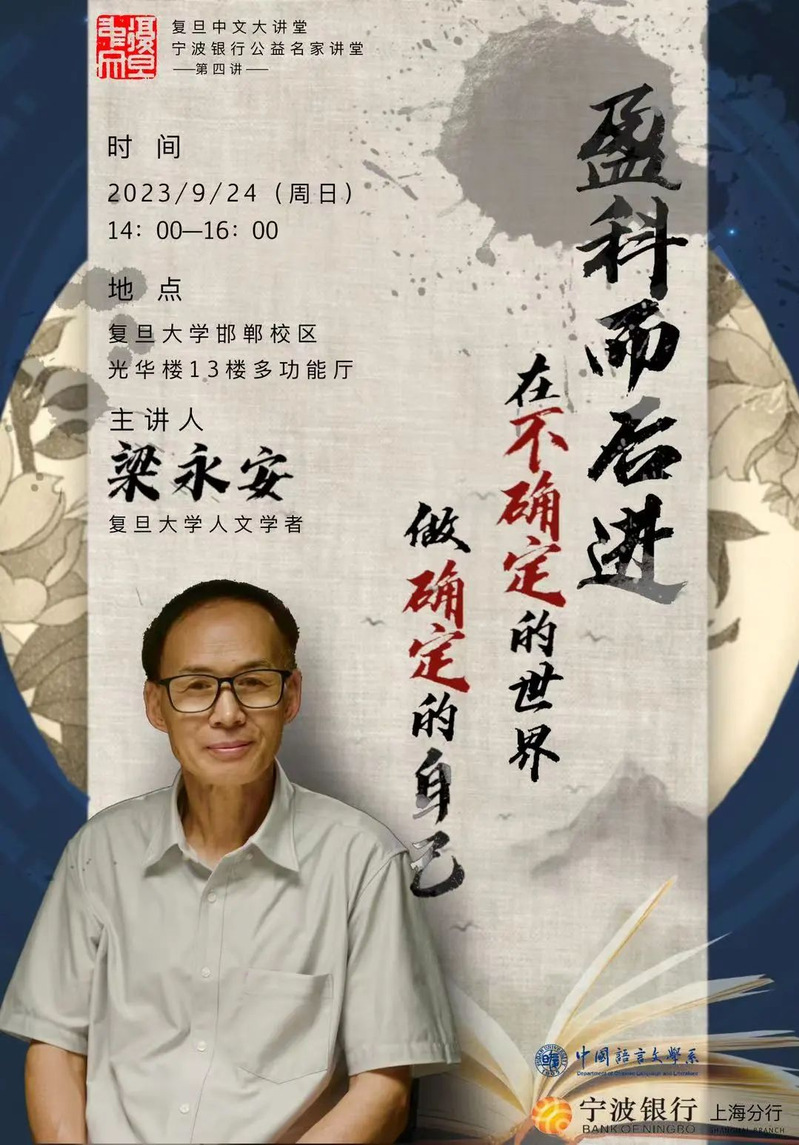 复旦中文大讲堂
宁波银行公益名家讲堂
—第四讲—
时 间
2023/9/24（周日）
14：00—16：00
地 点
复旦大学邯郸校区
光华楼13楼多功能厅
主讲人
梁永安
复旦大学人文学者
盈科而后进
在不确定的世界
做确定的自己
中國語言文學系
Department of Chinese Language and Literature
宁波银行 上海分行
BANK OF NINGBO SHANGHAI BRANCH